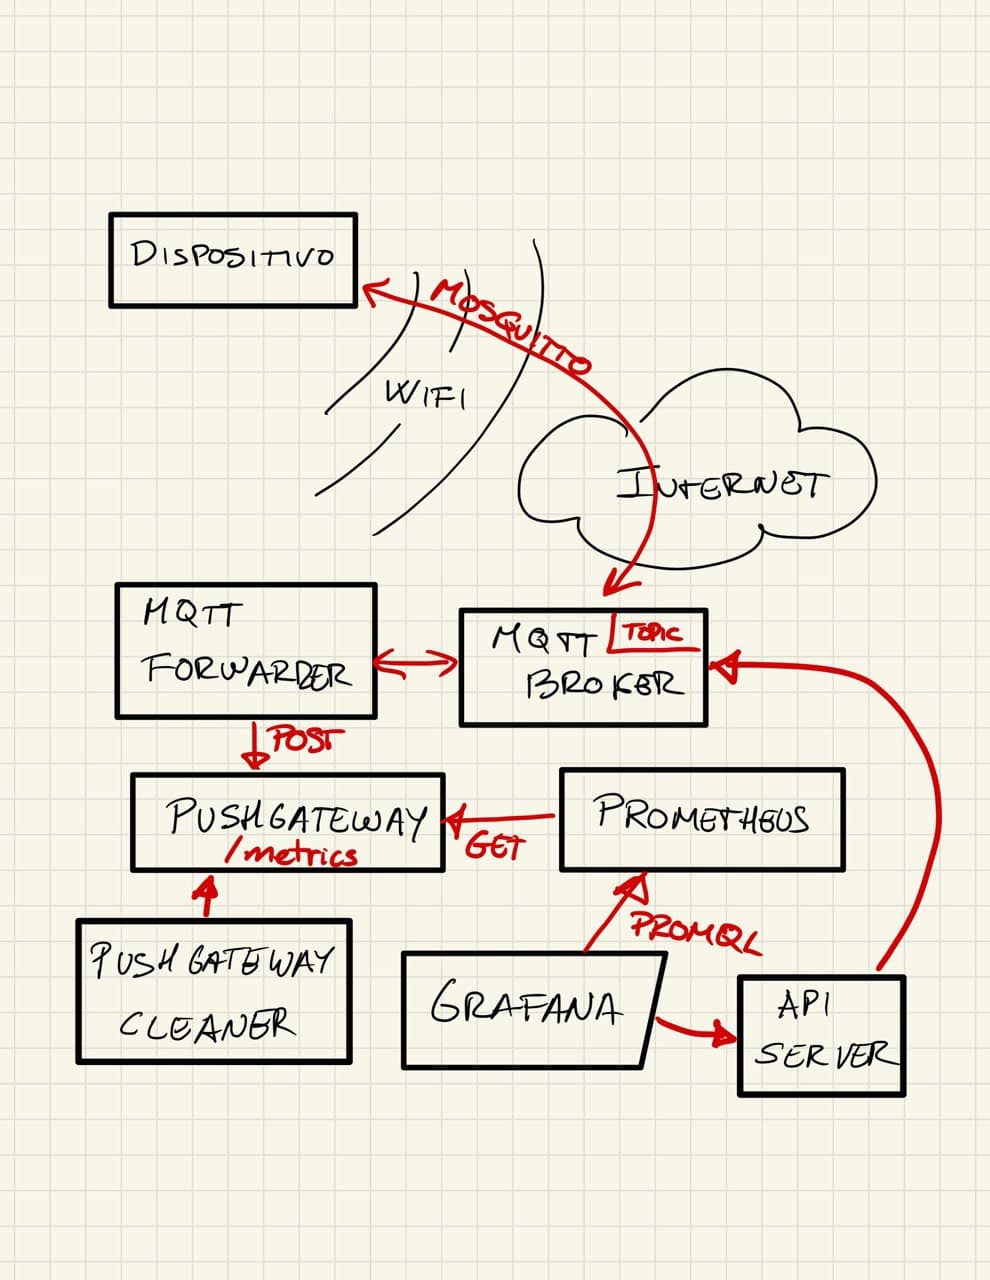 DISPOSITIVO
MOSQUITTO
WIFI
INTERNET
MQTT
FORWARDER
MQTT TOPIC
BROKER
POST
PUSHGATEWAY
/metrics
GET
PROMETHEUS
PROMQL
PUSHGATEWAY
CLEANER
GRAFANA
API
SERVER